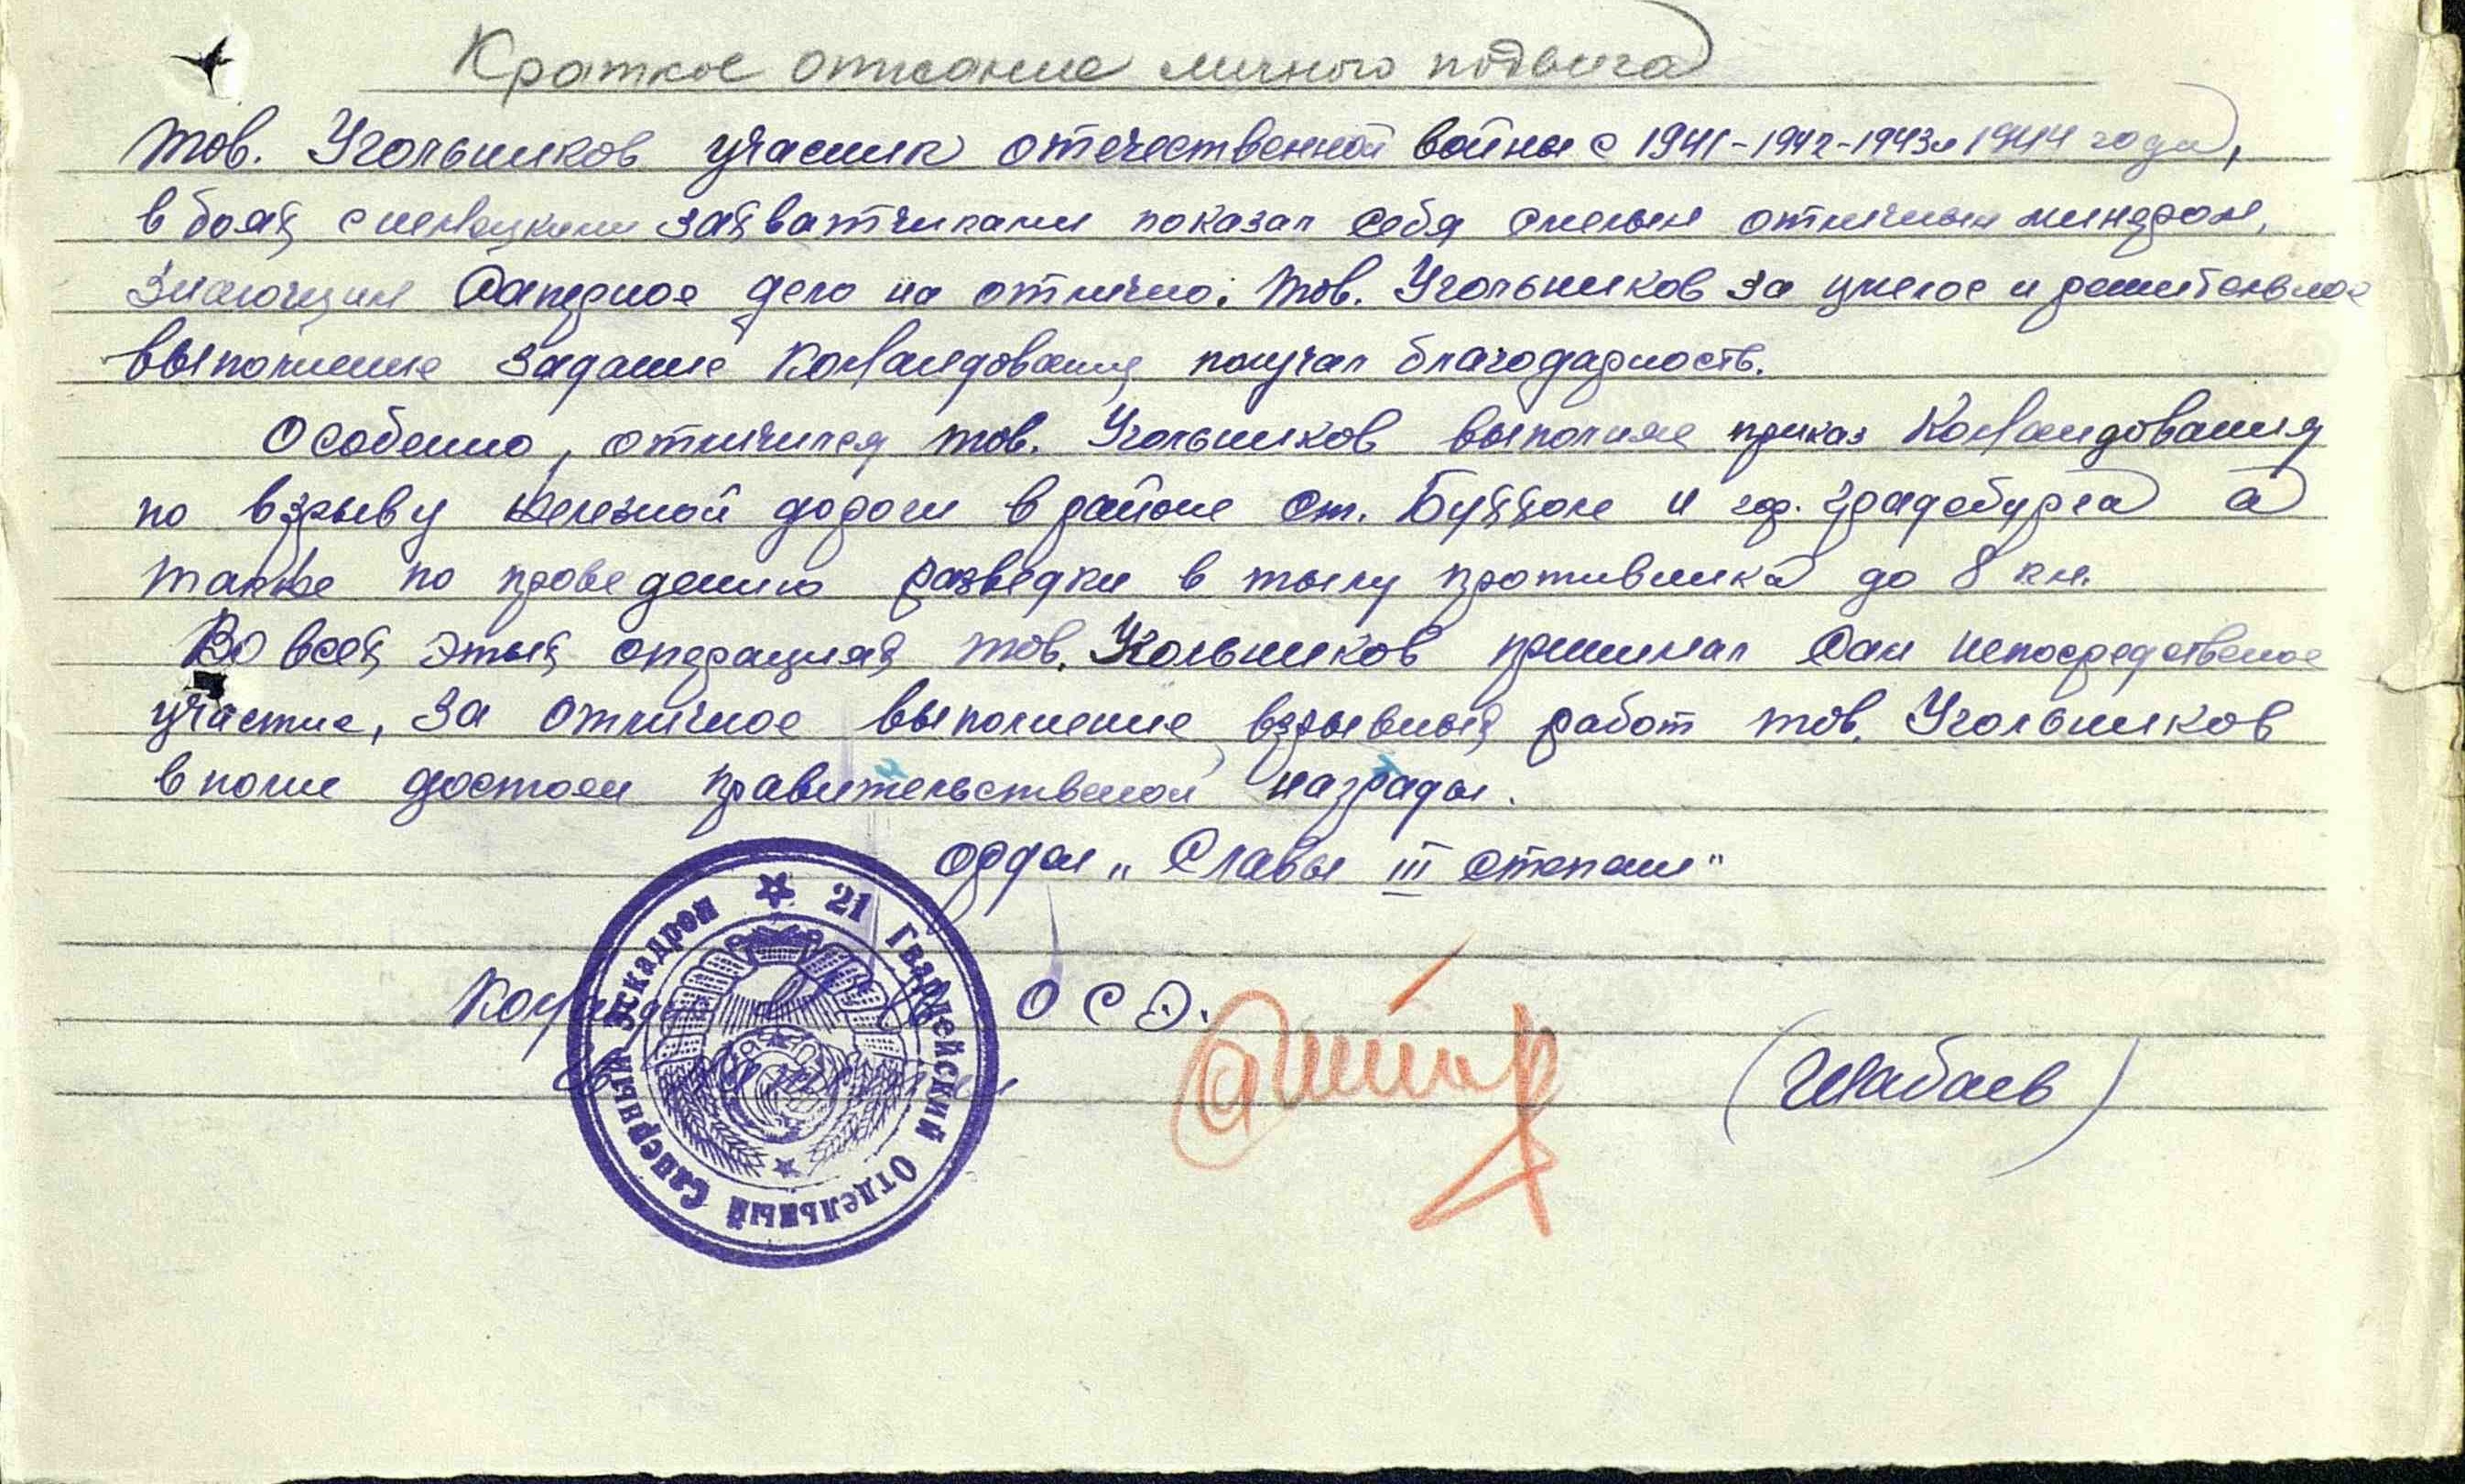 Краткое описание личного подвига
тов. Угольников учасник отечественной войны с 1941-1942-1943 и 1944 года,
в боях с немецкими захватчиками показал себя смелым отличным минером,
знающим саперное дело на отлично. тов. Угольников за умелое и решительное
выполнение задание командования получал благодарность.
Особенно, отличился тов. Угольников выполняя приказ командования
по взрыву железной дороги в районе ст. и гор. а
также по проведению разведки в тылу противника до 8 км.
Во всех этих операциях тов. Угольников принимал сам непосредственое
участие, за отличное выполнение взрывных работ тов. Угольников
вполне достоен правительственой награды.
Орден „Славы III степени"
О С Э.
(Шабаев)
21 Гвардейский Отдельный Саперный Эскадрон